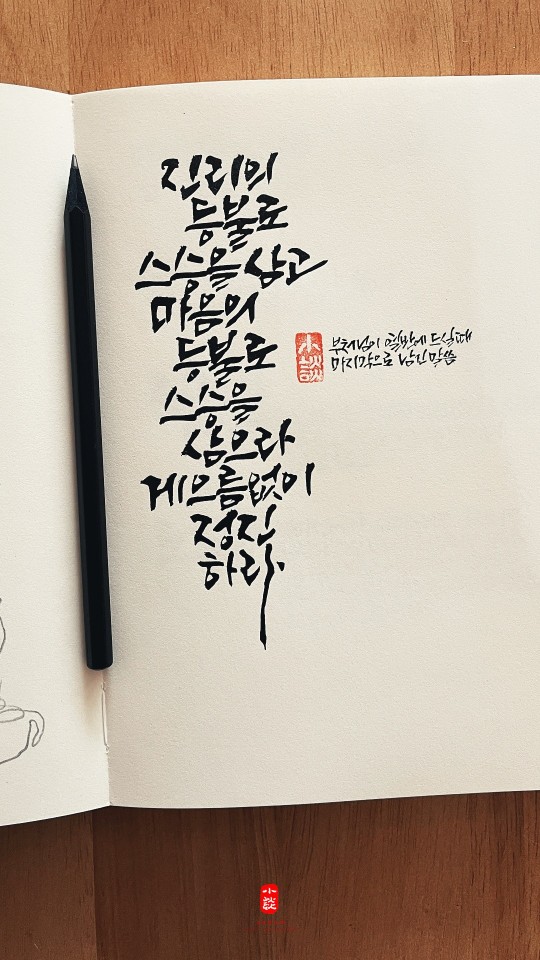 진리의
등불로
스승을 삼고
마음의
등불로
스승을
삼으라
게으름없이
정진
하라
小談
부처님이 열반에 드실때
마지막으로 남긴 말씀
小談